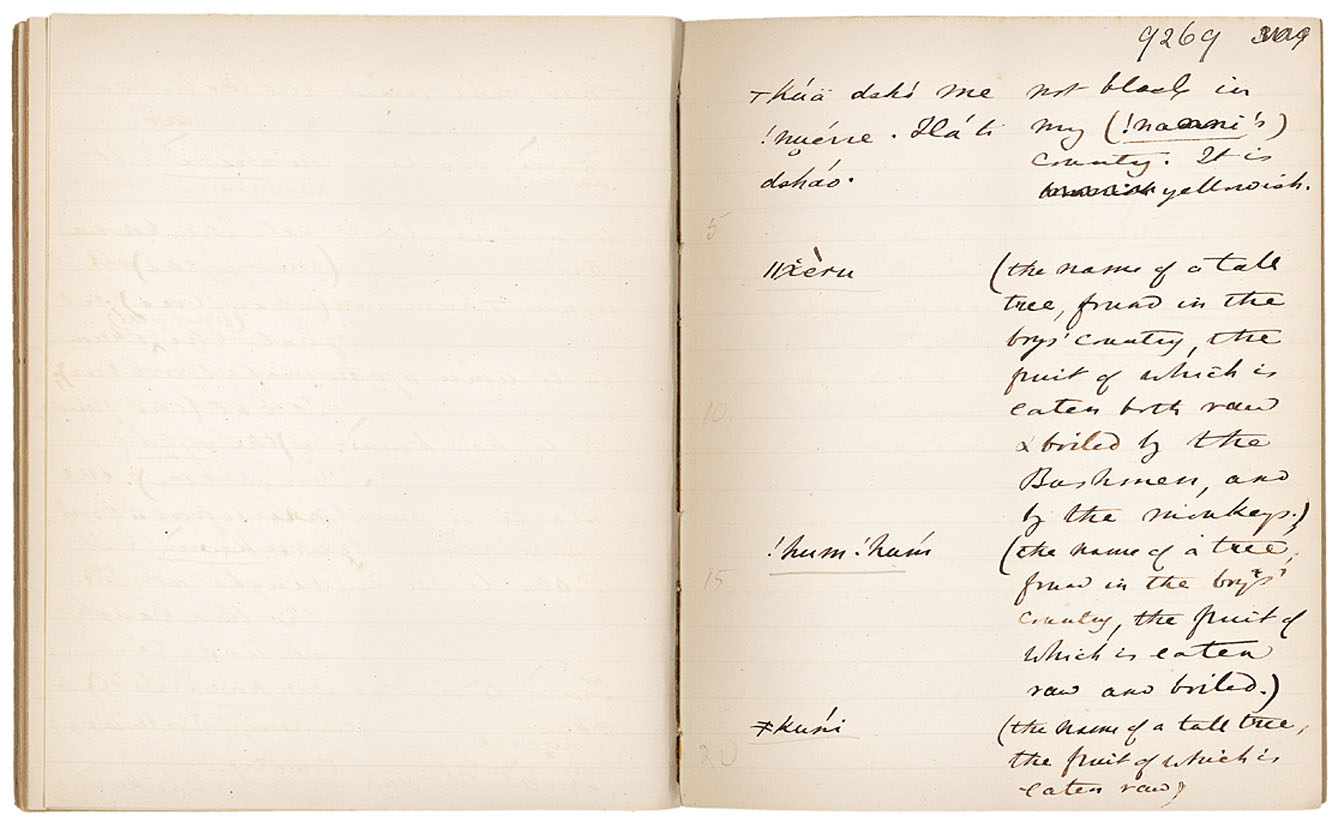 9269
ǂkúä dshó me not black in
!nuérre. Há ti my (!nanni's)
dsháo. country. It is
yellowish.
5
ǁxèru (the name of a tall
tree, found in the
boys' country, the
fruit of which is
10 eaten both raw
& boiled by the
Bushmen, and
by the monkeys.)
!hum!hum (the name of a tree,
15 found in the boys'
country, the fruit of
which is eaten
raw and boiled.)
ǂkuńi (the name of a tall tree,
20 the fruit of which is
eaten raw)